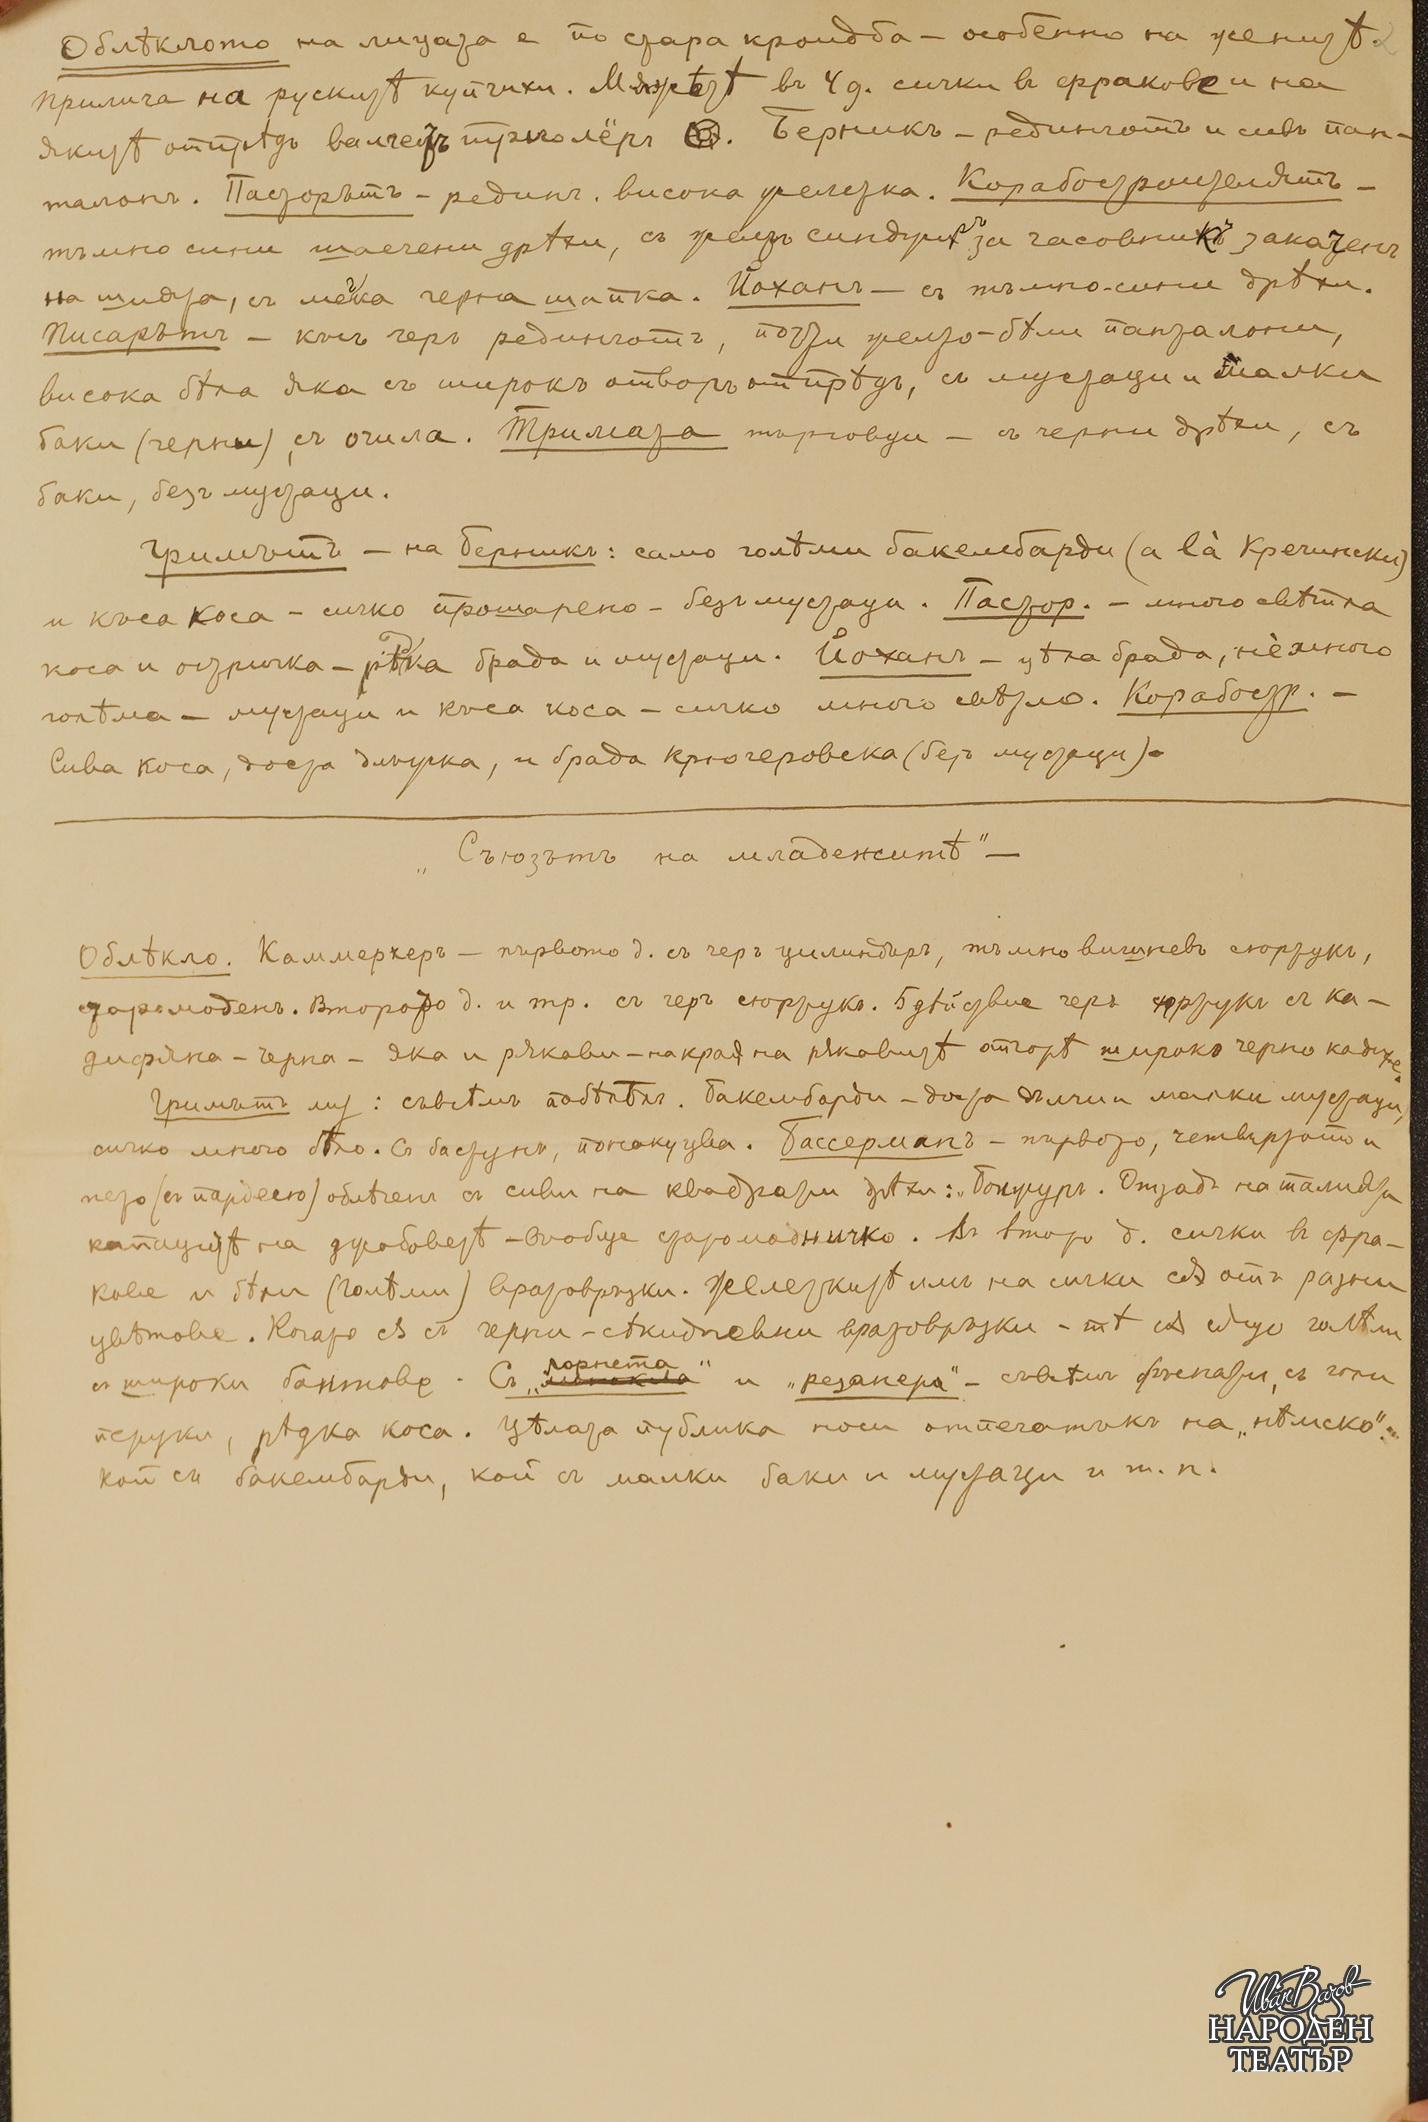 Облѣклото на лицата е по стара кроидба – особенно на женитѣ.
прилича на рускитѣ купчихи. Мѫжетѣ въ 4 д. сички въ фракове и на
якитѣ отпрѣдъ валчестъ триколёръ. Берникъ – рединготъ и сивъ пан-
талонъ. Пасторътъ – рединг. висока железка. Корабостроителятъ –
тъмно сини шаечени дрѣхи, съ жълтъ синджиръ за часовникъ закаченъ
на шията, съ мека черна шапка. Йоханъ – съ тъмно-сини дрѣхи.
Писарътъ – късъ черъ рединготъ, почти жълто-бѣли панталони,
висока бѣла яка съ широкъ отворъ отпрѣдъ, съ мустаци и малки
баки (черни), съ очила. Тримата търговци – съ черни дрѣхи, съ
баки, безъ мустаци.
Гримътъ – на Берникъ: само голѣми бакембарди (a là Кречински)
и къса коса – сичко прошарено – безъ мустаци. Пастор. – много свѣтла
коса и остричка – рѣдка брада и мустаци. Йоханъ – цѣла брада, не много
голѣма – мустаци и къса коса – сичко много свѣтло. Корабостр. –
Сива коса, доста дългичка, и брада крюгеровска (безъ мустаци).
„Съюзътъ на младежитѣ" –
Облѣкло. Каммерхеръ – първото д. съ черъ цилиндъръ, тъмно вишневъ сюртукъ,
старомоденъ. Второто д. и тр. съ черъ сюртукъ. 5 дѣйствие черъ сюртукъ съ ка-
дифяна – черна – яка и рѫкави – на края на рѫкавитѣ отгорѣ широко черно кадифе.
Гримътъ му: съвсѣмъ побѣлѣлъ. Бакембарди – доста дълги и малки мустаци,
сичко много бѣло. Съ бастунъ, понакуцва. Бассерманъ – първото, четвъртото и
пето (съ пардесю) облѣченъ съ сиви на квадрати дрѣхи: „Бонжуръ. Отзадъ на талията
капацитѣ на джобоветѣ – въобще старомодничко. Въ второ д. сички въ фра-
кове и бѣли (голѣми) вратовръзки. Железкитѣ имъ на сички сѫ отъ разни
цвѣтове. Когато сѫ съ черни – сѣкидневни вратовръзки – тѣ сѫ също голѣми
съ широки бантове. Съ „лорнета" и „резонера" – съвсѣмъ съ голи
перуки, рѣдка коса. Цѣлата публика носи отпечатъкъ на „нѣмско".
кой съ бакембарди, кой съ малки баки и мустаци и т. н.
Иван Вазов
НАРОДЕН
ТЕАТЪР